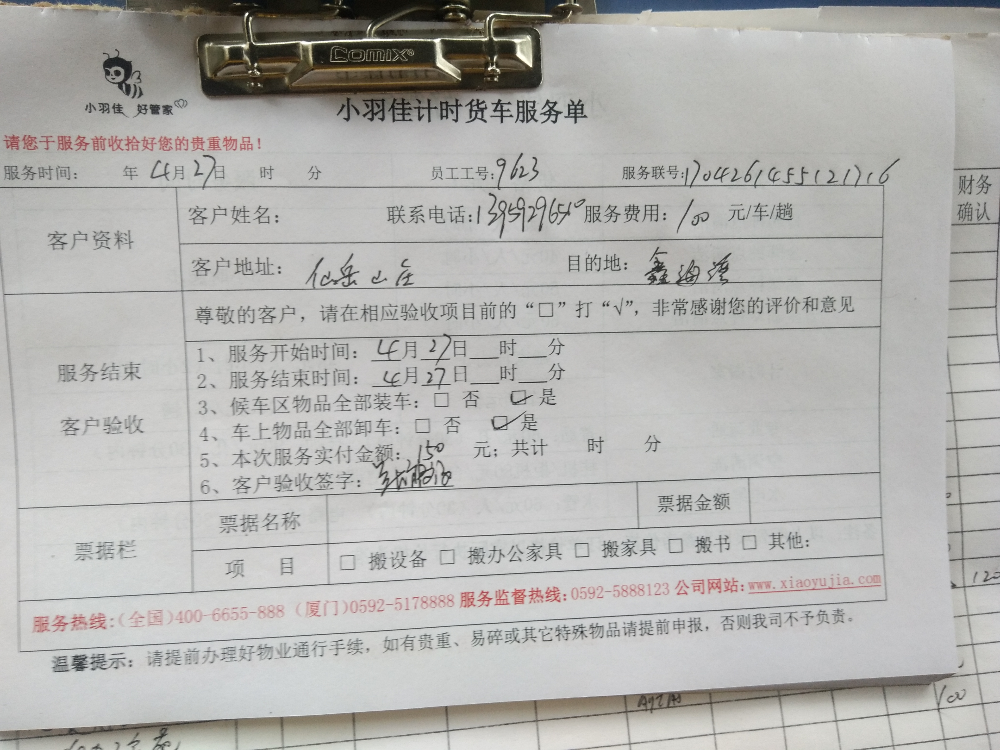 Comix®
小羽佳 好管家
小羽佳计时货车服务单
请您于服务前收拾好您的贵重物品!
服务时间: 年 4月27日 时 分 员工工号:9623 服务联号:1704261455121716
财务
确认
客户资料
客户姓名: 联系电话: 服务费用:100 元/车/趟
客户地址: 仙岳山庄 目的地: 鑫海湾
尊敬的客户,请在相应验收项目前的“□”打“√”,非常感谢您的评价和意见
服务结束
客户验收
1、服务开始时间:4月27日___时___分
2、服务结束时间:4月27日___时___分
3、候车区物品全部装车:□ 否 ☑ 是
4、车上物品全部卸车:□ 否 ☑ 是
5、本次服务实付金额:150 元;共计 时 分
6、客户验收签字:
票据栏
票据名称 票据金额
项 目 □ 搬设备 □ 搬办公家具 □ 搬家具 □ 搬书 □ 其他:
服务热线:(全国)400-6655-888 (厦门)0592-5178888 服务监督热线:0592-5888123 公司网站:www.xiaoyujia.com
温馨提示:请提前办理好物业通行手续,如有贵重、易碎或其它特殊物品请提前申报,否则我司不予负责。
120
100